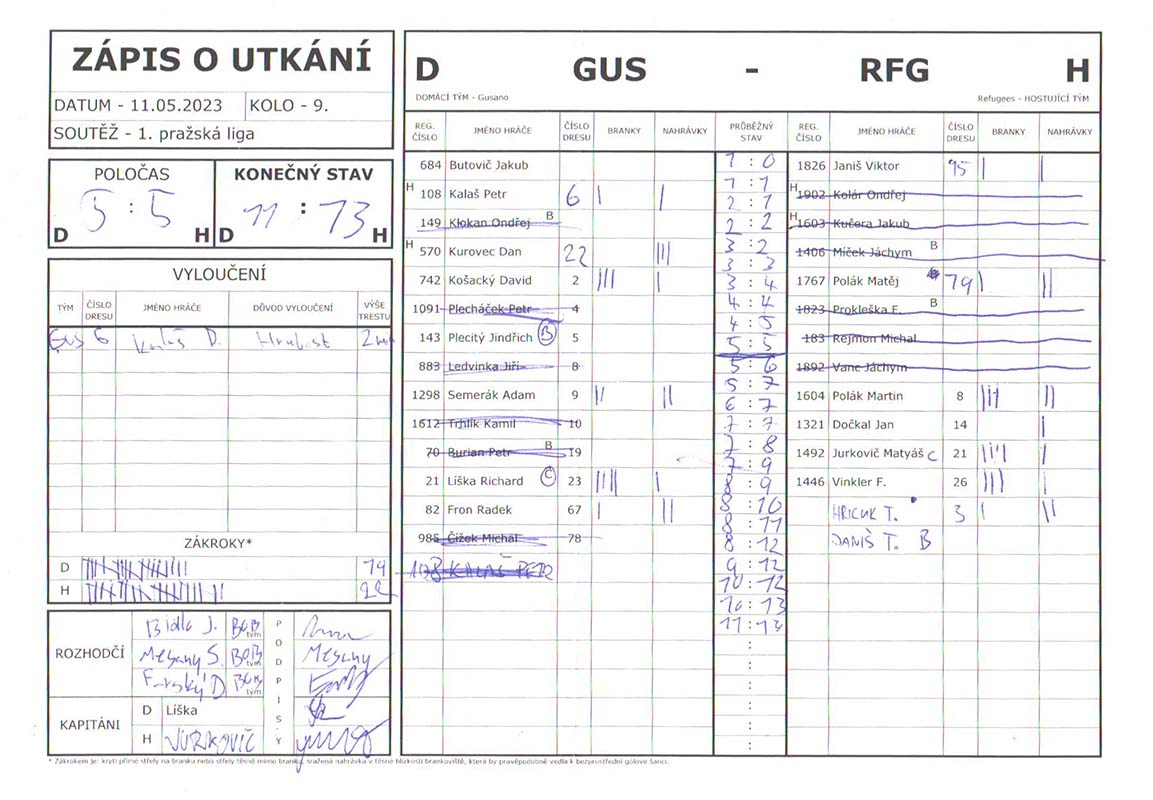 ZÁPIS O UTKÁNÍ
DATUM - 11.05.2023 KOLO - 9.
SOUTĚŽ - 1. pražská liga
POLOČAS KONEČNÝ STAV
5 : 5 11 : 13
D H D H
VYLOUČENÍ
TÝM ČÍSLO DRESU JMÉNO HRÁČE DŮVOD VYLOUČENÍ VÝŠE TRESTU
GUS 6 Kalaš D. Hrubost 2 min
ZÁKROKY*
D 19
H 22
ROZHODČÍ PODPISY
Bidlo J. BOB tým
Mesany S. BOB tým Mesany
Farský D BOB tým
KAPITÁNI
D Líška
H JURKOVIČ
D GUS - RFG H
DOMÁCÍ TÝM - Gusano Refugees - HOSTUJÍCÍ TÝM
REG. ČÍSLO JMÉNO HRÁČE ČÍSLO DRESU BRANKY NAHRÁVKY PRŮBĚŽNÝ STAV REG. ČÍSLO JMÉNO HRÁČE ČÍSLO DRESU BRANKY NAHRÁVKY
684 Butovič Jakub
H 108 Kalaš Petr 6 | |
149 Klokan Ondřej B
H 570 Kurovec Dan 22 |||
742 Košacký David 2 ||| |
1091 Plecháček Petr 4
143 Plecitý Jindřich B 5
883 Ledvinka Jiří 8
1298 Semerák Adam 9 || ||
1612 Trhlík Kamil 10
70 Burian Petr B 19
21 Líška Richard C 23 |||| |
82 Fron Radek 67 | ||
985 Čížek Michal 78
108 KALAŠ PETR
1 : 0
1 : 1
2 : 1
2 : 2
3 : 2
3 : 3
3 : 4
4 : 4
4 : 5
5 : 5
5 : 6
5 : 7
6 : 7
7 : 7
7 : 8
7 : 9
8 : 9
8 : 10
8 : 11
8 : 12
9 : 12
10 : 12
10 : 13
11 : 13
1826 Janiš Viktor 95 | |
H 1902 Kolár Ondřej
H 1603 Kučera Jakub
1406 Míček Jáchym B
1767 Polák Matěj 79 | ||
1823 Prokleška F. B
183 Rejmon Michal
1892 Vanc Jáchym
1604 Polák Martin 8 ||| ||
1321 Dočkal Jan 14 |
1492 Jurkovič Matyáš C 21 |||| |
1446 Vinkler F. 26 ||| |
HRICUK T. 3 | ||
JANIŠ T. B
* Zákrokem je: krytí přímé střely na branku nebo střely těsně mimo branku, sražená nahrávka v těsné blízkosti brankoviště, která by pravěpodobně vedla k bezprostřední gólové šanci.